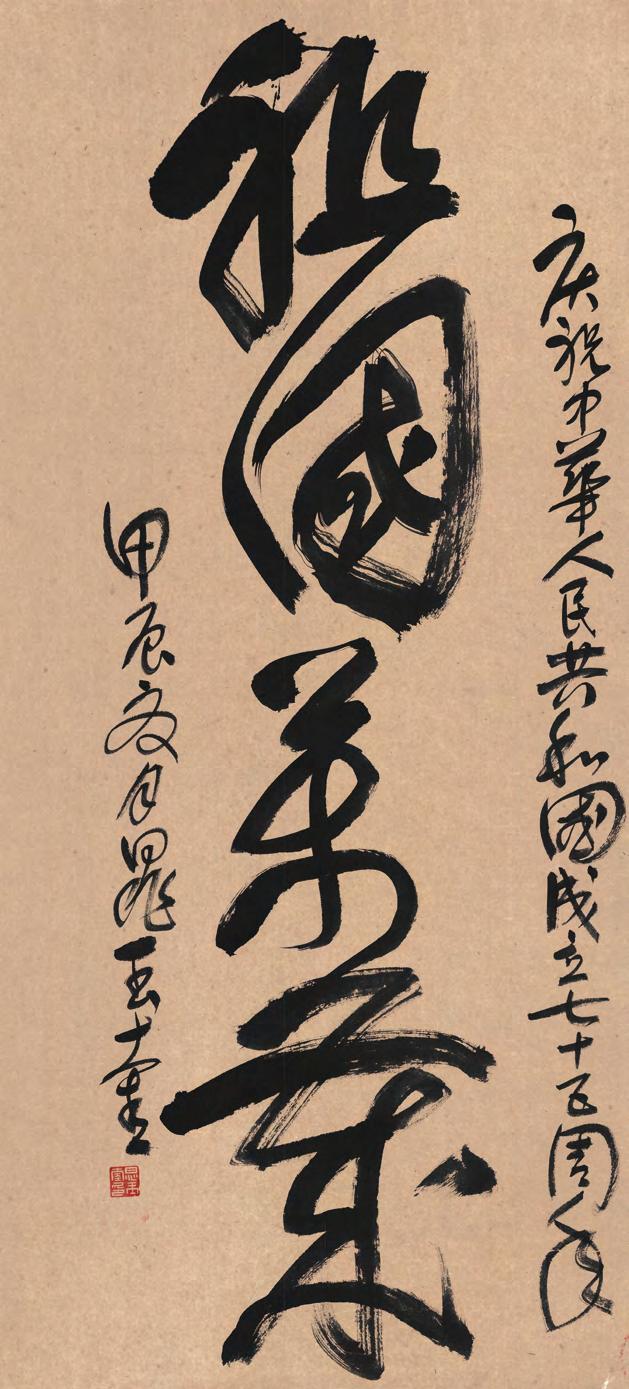 庆祝中華人民共和國成立七十五周年
祖國萬歲
甲辰夏月晁玉奎